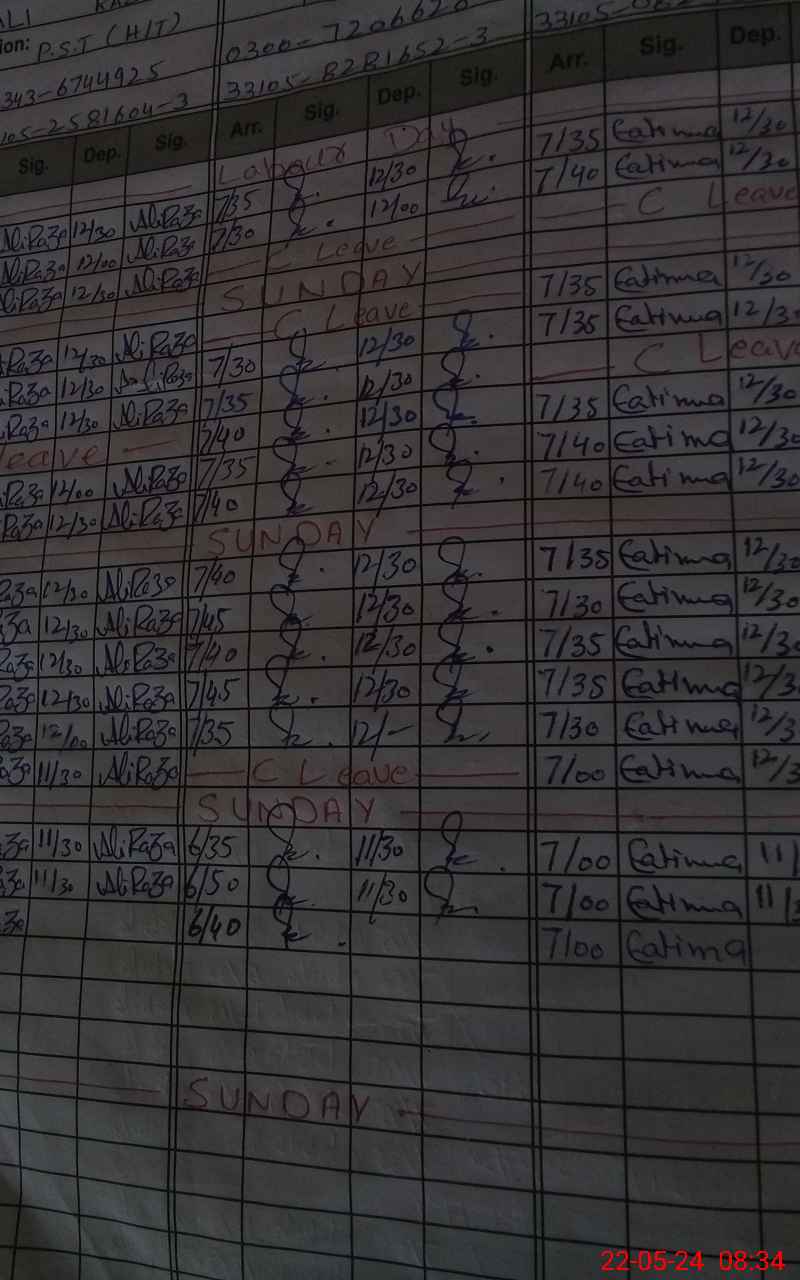 ALI
ion: P.S.T (H/T) 0300-7206620 33105-
343-6744925 33105-8281652-3
105-2581604-3
Sig. Dep. Sig. Arr. Sig. Dep. Sig. Arr. Sig. Dep.
Labour Day 7/35 Fatima 12/30
AliRaza 12/30 AliRaza 7/35 12/30 7/40 Fatima 12/30
AliRaza 12/00 AliRaza 7/30 12/00 C Leave
AliRaza 12/30 AliRaza C Leave
SUNDAY 7/35 Fatima 12/30
Raza 12/30 AliRaza C Leave 7/35 Fatima 12/30
iRaza 12/30 AliRaza 7/30 12/30 C Leave
iRaza 12/30 AliRaza 7/35 12/30 7/35 Fatima 12/30
eave 7/40 12/30 7/40 Fatima 12/30
iRaza 12/00 AliRaza 7/35 12/30 7/40 Fatima 12/30
Raza 12/30 AliRaza 7/40 12/30
SUNDAY
Raza 12/30 AliRaza 7/40 12/30 7/35 Fatima 12/30
za 12/30 AliRaza 7/45 12/30 7/30 Fatima 12/30
Raza 12/30 AliRaza 7/40 12/30 7/35 Fatima 12/30
Raza 12/30 AliRaza 7/45 12/30 7/35 Fatima 12/3
Raza 12/00 AliRaza 7/35 12/- 7/30 Fatima 12/3
za 11/30 AliRaza C Leave 7/00 Fatima 12/3
SUNDAY
za 11/30 AliRaza 6/35 11/30 7/00 Fatima 11/
za 11/30 AliRaza 6/50 11/30 7/00 Fatima 11/3
za 6/40 7/00 Fatima
SUNDAY
22-05-24 08:34